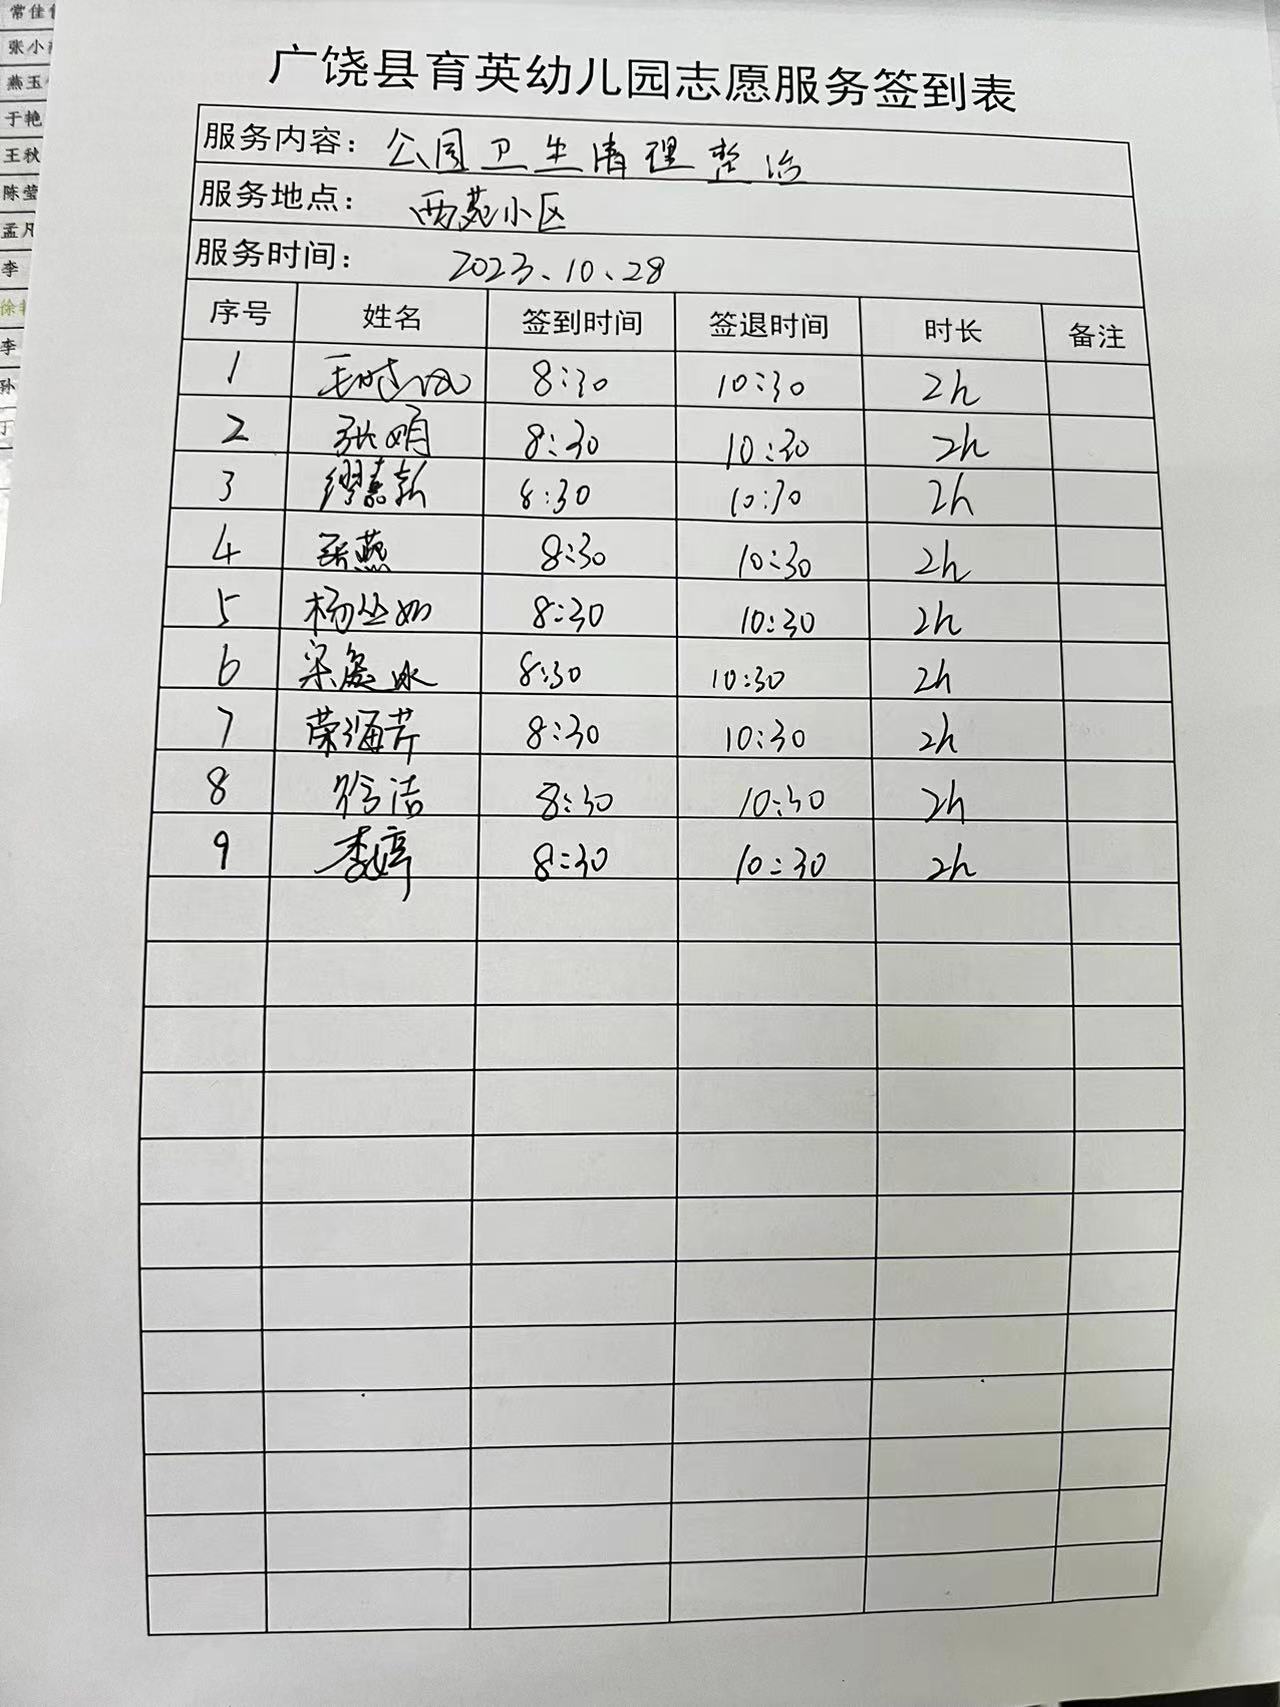 常佳
张小
燕玉
于艳
王秋
陈莹
孟凡
李
徐
李
孙
丁
广饶县育英幼儿园志愿服务签到表
服务内容：公园卫生清理整治
服务地点：西苑小区
服务时间：2023、10、28
序号 姓名 签到时间 签退时间 时长 备注
1 8:30 10:30 2h
2 张娟 8:30 10:30 2h
3 缪嘉新 8:30 10:30 2h
4 燕 8:30 10:30 2h
5 杨丛如 8:30 10:30 2h
6 冰 8:30 10:30 2h
7 荣海芹 8:30 10:30 2h
8 徐洁 8:30 10:30 2h
9 李婷 8:30 10:30 2h